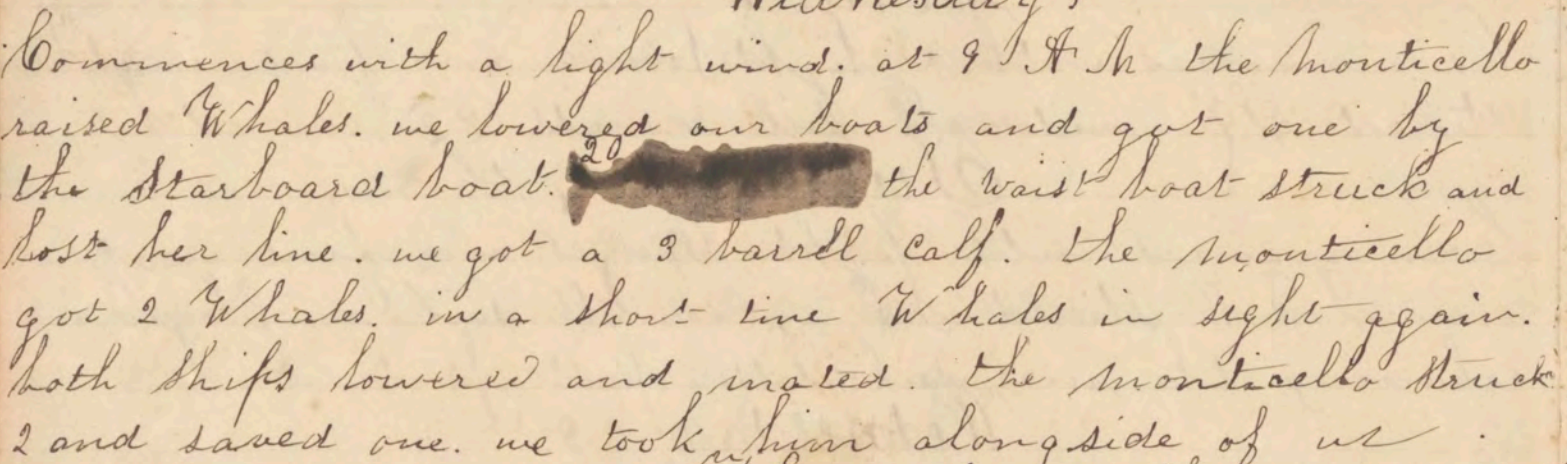 Commences with a light wind. at 9 A M the Monticello
raised Whales. we lowered our boats and got one by
20
the Starboard boat. the waist boat struck and
lost her line. we got a 3 barrell Calf. the Monticello
got 2 Whales. in a short time Whales in sight again.
both Ships lowered and mated. the Monticello struck
2 and saved one. we took him alongside of us